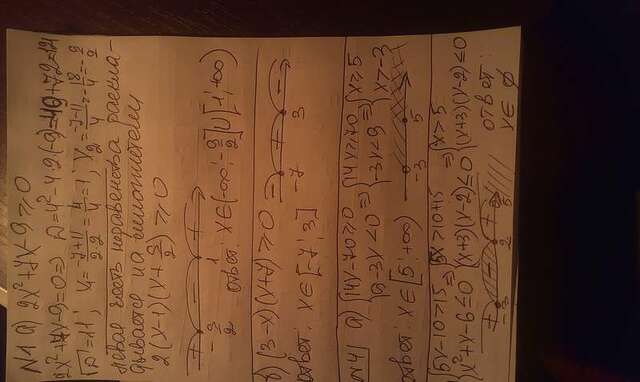 N1 а) 2x²+7x-9≥0
2x²+7x-9=0 ⇒ D=7²-4·2(-9)=49+72=121
√D=11; x₁=(-7+11)/(2·2)=4/4=1; x₂=(-7-11)/4=-18/4=-9/2
левая часть неравенства расклa-
дывается на множители
2(x-1)(x+9/2)≥0
+ - +
-9/2 1
ответ: x∈(-∞;-9/2]∪[1;+∞)
б) (3-x)(x+7)≥0
- + -
-7 3
ответ: x∈[-7;3]
N4 а) {14x-70≥0 {6-3x<0 ⇒ {14x≥70 {-3x<9 ⇒ {x≥5 {x>-3
-3 5
ответ: x∈[5;+∞)
{5x-10>15 {x²+x-6≤0 ⇒ {5x>10+15 {(x+3)(x-2)≤0 ⇒ {x>5 {(x+3)(x-2)≤0
+ - +
-3 2 5
ответ:
x∈∅